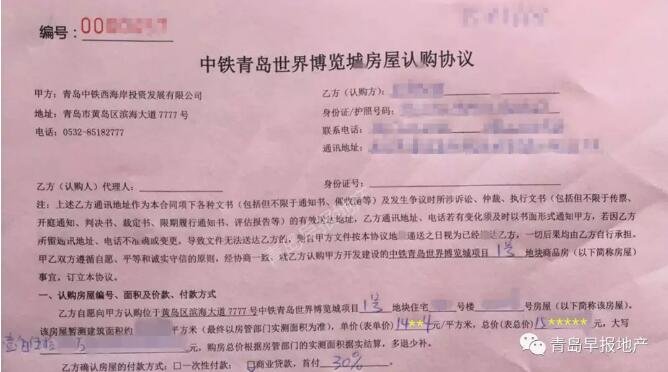 编号：00
中铁青岛世界博览城房屋认购协议
甲方：青岛中铁西海岸投资发展有限公司
乙方（认购方）：
地址：青岛市黄岛区滨海大道7777号
身份证/护照号码：
电话：0532-85182777
联系电话：
通讯地址：
乙方（认购人）代理人：
身份证号：
注：上述乙方通讯地址作为本合同项下各种文书（包括但不限于通知书、催收函等）及发生争议时所涉诉讼、仲裁、执行文书（包括但不限于传票、
开庭通知、判决书、裁定书、限期履行通知书、评估报告等）的有效送达地址，乙方通讯地址、电话若有变化须及时以书面形式通知甲方，若因乙方
所留通讯地址、电话不准确或变更，导致文件无法送达乙方的，甲方文件按本协议地 递送之日视为已经 达乙方，一切后果均由乙方自行承担。
甲乙双方遵循自愿、平等和诚实守信的原则，经协商一致，就乙方认购甲方开发建设的中铁青岛世界博览城项目 1号 地块商品房（以下简称房屋）
事宜，订立本协议。
一、认购房屋编号、面积及价款、付款方式
乙方自愿向甲方认购位于黄岛区滨海大道7777号中铁青岛世界博览城项目 1号 地块住宅 号楼 号房屋（以下简称该房屋）。
该房屋暂测建筑面积约 平方米（最终以房管部门实测面积为准），单价(表单价)14**4元/平方米，总价(表总价)15*****元，大写
万 ，购房总价根据房管部门实测面积据实结算，多退少补。
乙方确认房屋的付款方式：□一次性付款；☑商业贷款，首付 30%
青岛早报地产